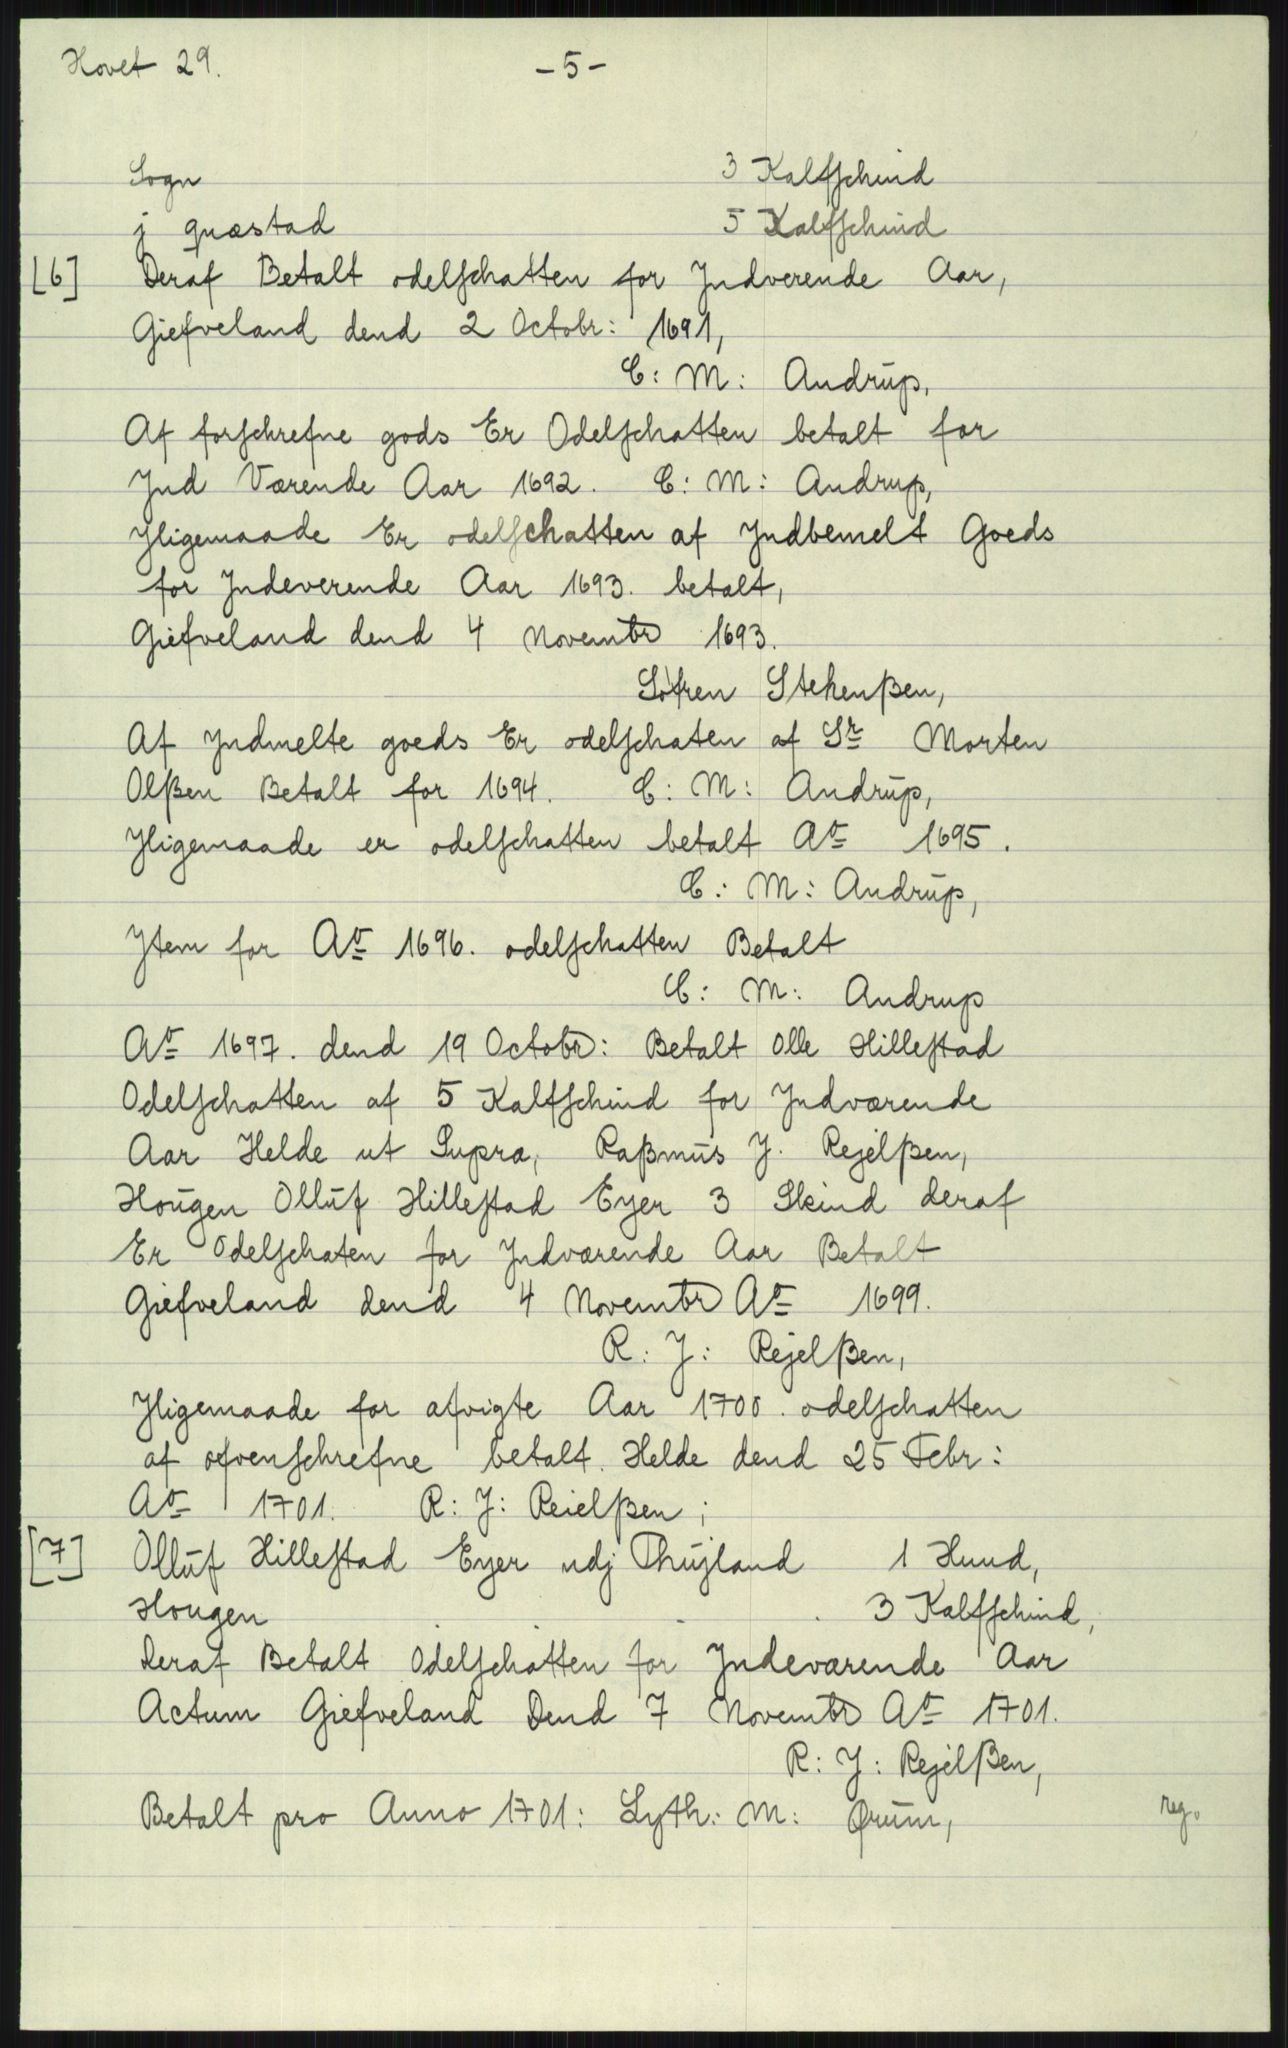 Hovet 29.
-5-
Sogn 3 Kalfschind
j quæstad 5 Kalfschind
[6] Deraf Betalt odelschatten for Jndverende Aar,
Giefveland dend 2 Octobr: 1691,
C: M: Andrup,
Af forschrefne gods Er Odelschatten betalt for
Jnd Værende Aar 1692. C: M: Andrup,
Jligemaade Er odelschatten af Jndbemelt Goeds
for Jndeverende Aar 1693. betalt,
Giefveland dend 4 Novembr 1693.
Søfren Stehenßen,
Af Jndmelte goeds Er odelschaten af Sr Morten
Olßen Betalt for 1694. C: M: Andrup,
Jligemaade er odelschatten betalt Ao 1695.
C: M: Andrup,
Jtem for Ao 1696. odelschatten Betalt
C: M: Andrup
Ao 1697. dend 19 Octobr: Betalt Olle Hillestad
Odelschatten af 5 Kalfschind for Jndværende
Aar Helde ut Supra, Raßmus J. Rejelßen,
Hougen Olluf Hillestad Eyer 3 Skind deraf
Er Odelschaten for Jndværende Aar Betalt
Giefveland dend 4 Novembr Ao 1699.
R: J: Rejelßen,
Jligemaade for afvigte Aar 1700. odelschatten
af ofvenschrefne betalt. Helde dend 25 Febr:
Ao 1701. R: J: Reielßen;
[7] Olluf Hillestad Eyer udj Thujland 1 Hund,
Hougen 3 Kalfschind,
Deraf Betalt Odelschatten for Jndeværende Aar
Actum Giefveland Dend 7 Novembr Ao 1701.
R: J: Rejelßen,
Betalt pro Anno 1701: Lyth: M: Ørum,
reg.